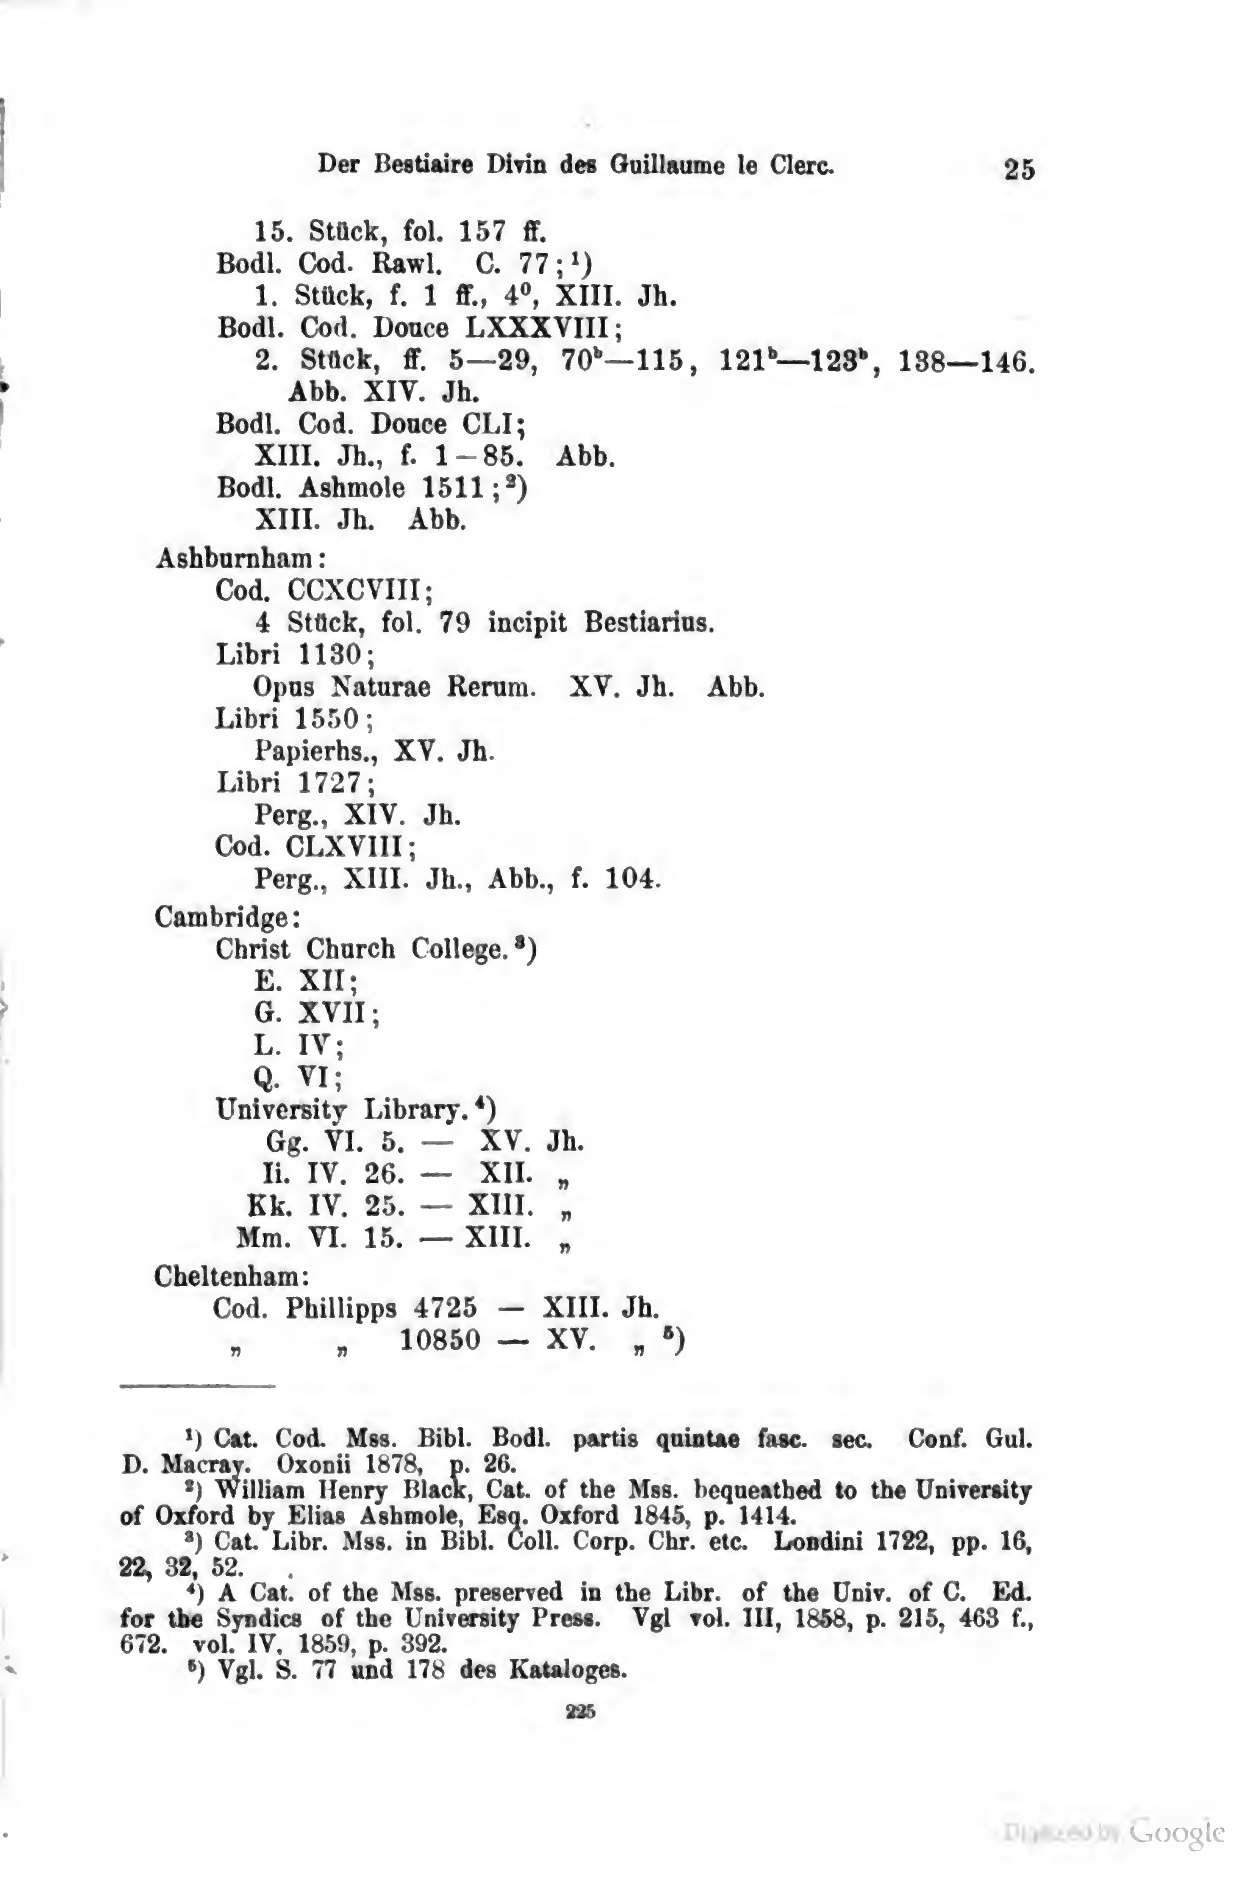 Der Bestiaire Divin des Guillaume le Clerc. 25
15. Stück, fol. 157 ff.
Bodl. Cod. Rawl. C. 77;¹)
1. Stück, f. 1 ff., 4⁰, XIII. Jh.
Bodl. Cod. Douce LXXXVIII;
2. Stück, ff. 5—29, 70ᵇ—115, 121ᵇ—123ᵇ, 138—146.
Abb. XIV. Jh.
Bodl. Cod. Douce CLI;
XIII. Jh., f. 1–85. Abb.
Bodl. Ashmole 1511;²)
XIII. Jh. Abb.
Ashburnham:
Cod. CCXCVIII;
4 Stück, fol. 79 incipit Bestiarius.
Libri 1130;
Opus Naturae Rerum. XV. Jh. Abb.
Libri 1550;
Papierhs., XV. Jh.
Libri 1727;
Perg., XIV. Jh.
Cod. CLXVIII;
Perg., XIII. Jh., Abb., f. 104.
Cambridge:
Christ Church College.³)
E. XII;
G. XVII;
L. IV;
Q. VI;
University Library.⁴)
Gg. VI. 5. — XV. Jh.
Ii. IV. 26. — XII. „
Kk. IV. 25. — XIII. „
Mm. VI. 15. — XIII. „
Cheltenham:
Cod. Phillipps 4725 — XIII. Jh.
„ „ 10850 — XV. „ ⁵)
¹) Cat. Cod. Mss. Bibl. Bodl. partis quintae fasc. sec. Conf. Gul.
D. Macray. Oxonii 1878, p. 26.
²) William Henry Black, Cat. of the Mss. bequeathed to the University
of Oxford by Elias Ashmole, Esq. Oxford 1845, p. 1414.
³) Cat. Libr. Mss. in Bibl. Coll. Corp. Chr. etc. Londini 1722, pp. 16,
22, 32, 52.
⁴) A Cat. of the Mss. preserved in the Libr. of the Univ. of C. Ed.
for the Syndics of the University Press. Vgl vol. III, 1858, p. 215, 463 f.,
672. vol. IV, 1859, p. 392.
⁵) Vgl. S. 77 und 178 des Kataloges.
225
Digitized by Google